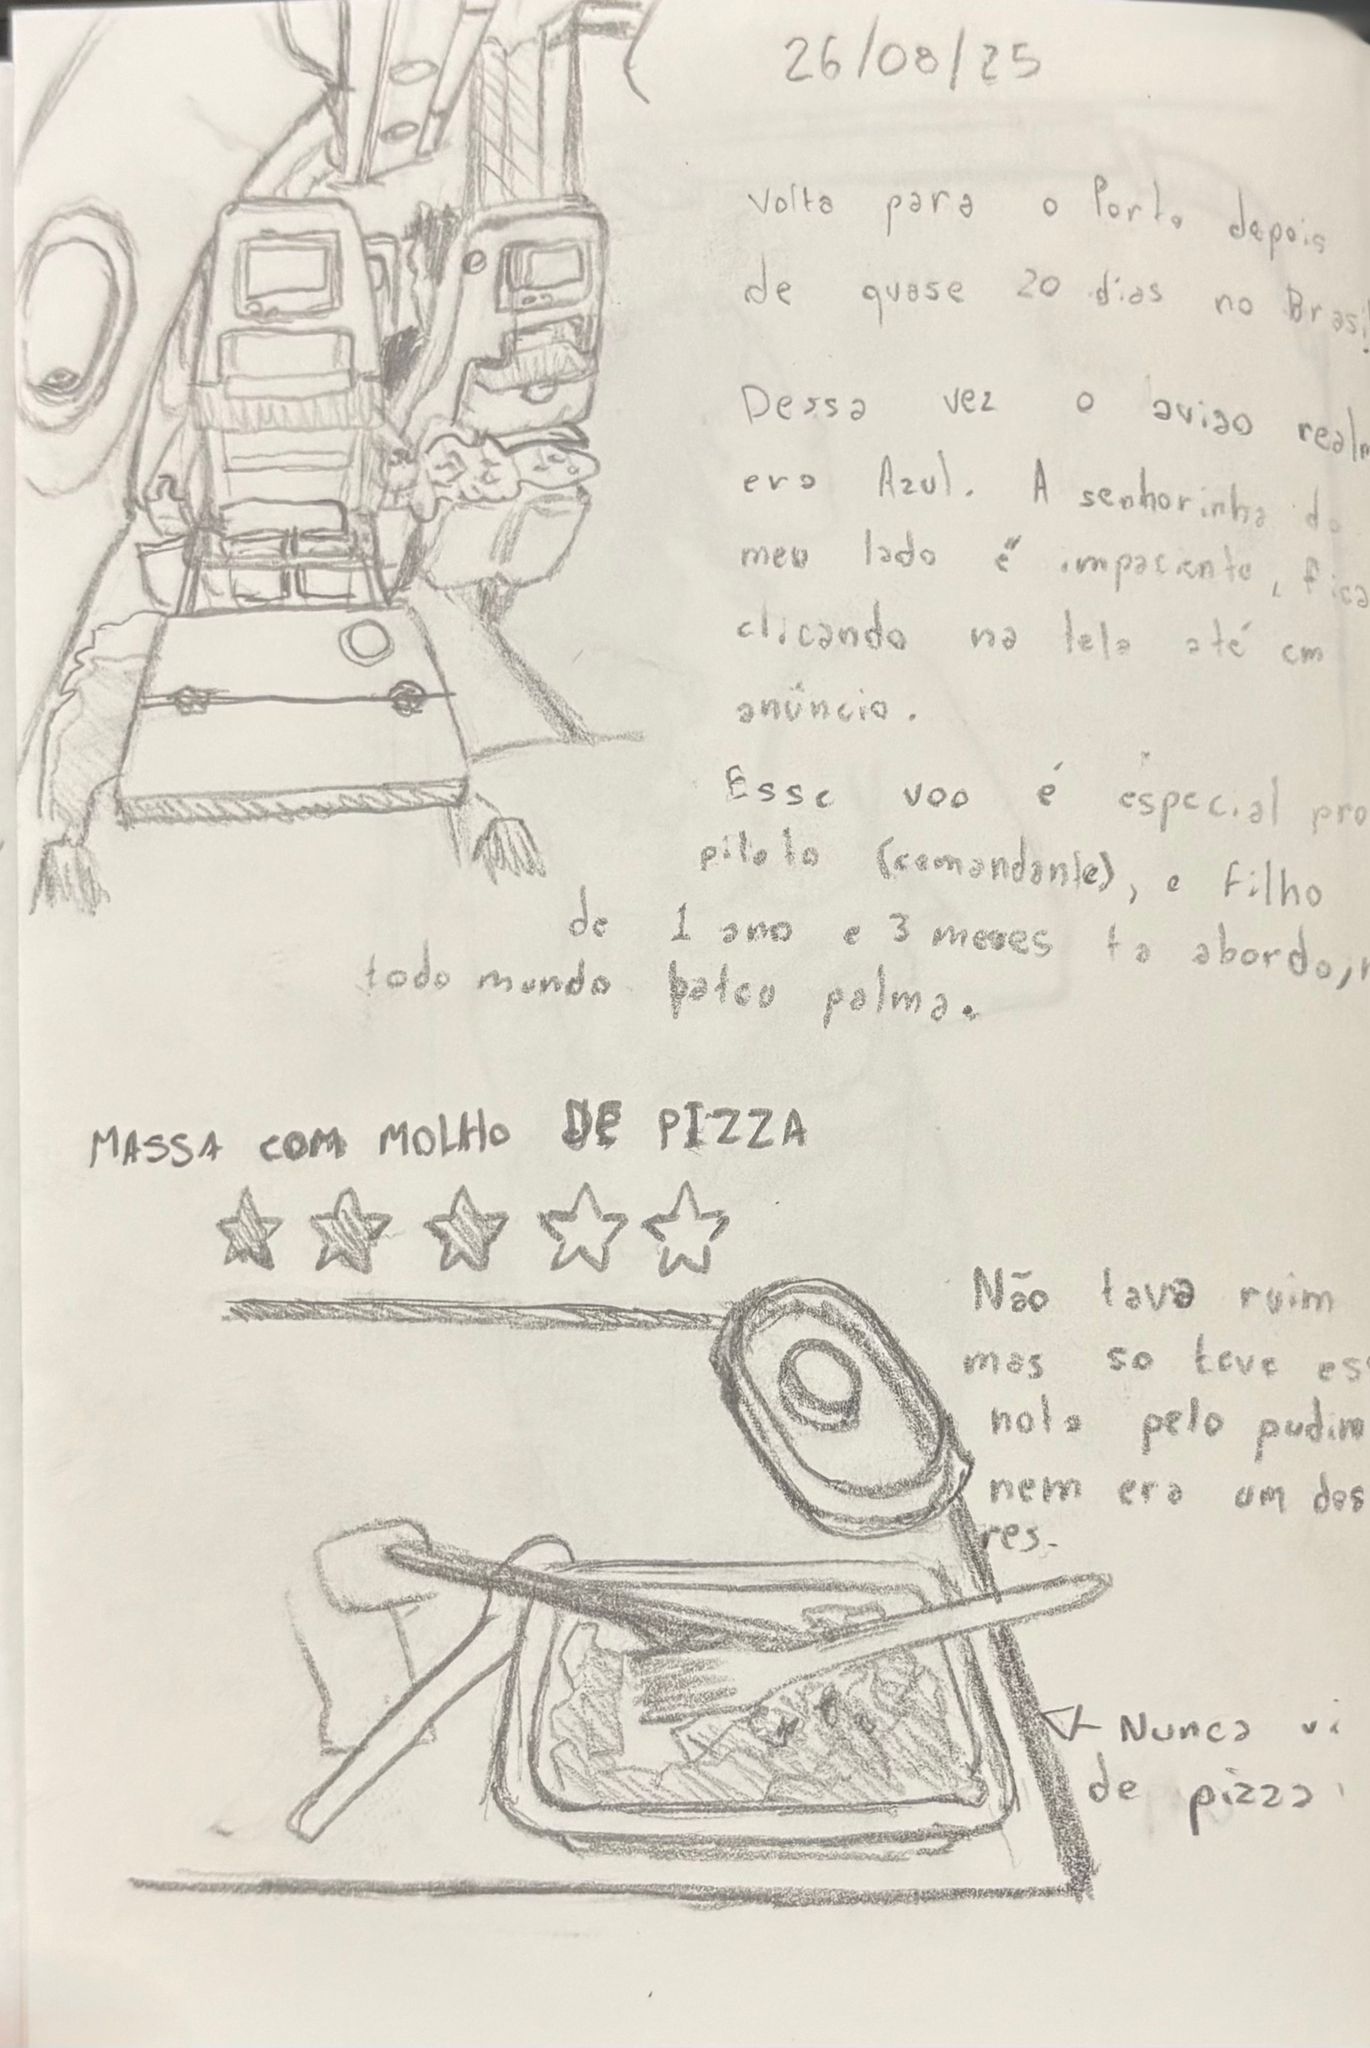 26/08/25
Volta para o Porto depois
de quase 20 dias no Brasil
Dessa vez o avião
era Azul. A senhorinha do
meu lado é impaciente, fica
clicando na tela até em
anúncio.
Esse voo é especial pro
piloto (comandante), o filho
de 1 ano e 3 meses ta abordo,
todo mundo bateu palma.
MASSA COM MOLHO DE PIZZA
Não tava ruim
mas so teve
nota pelo pudim
nem era um dos
res.
Nunca vi
de pizza